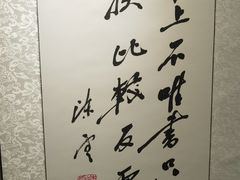 上不唯書只
比較反
陈雲